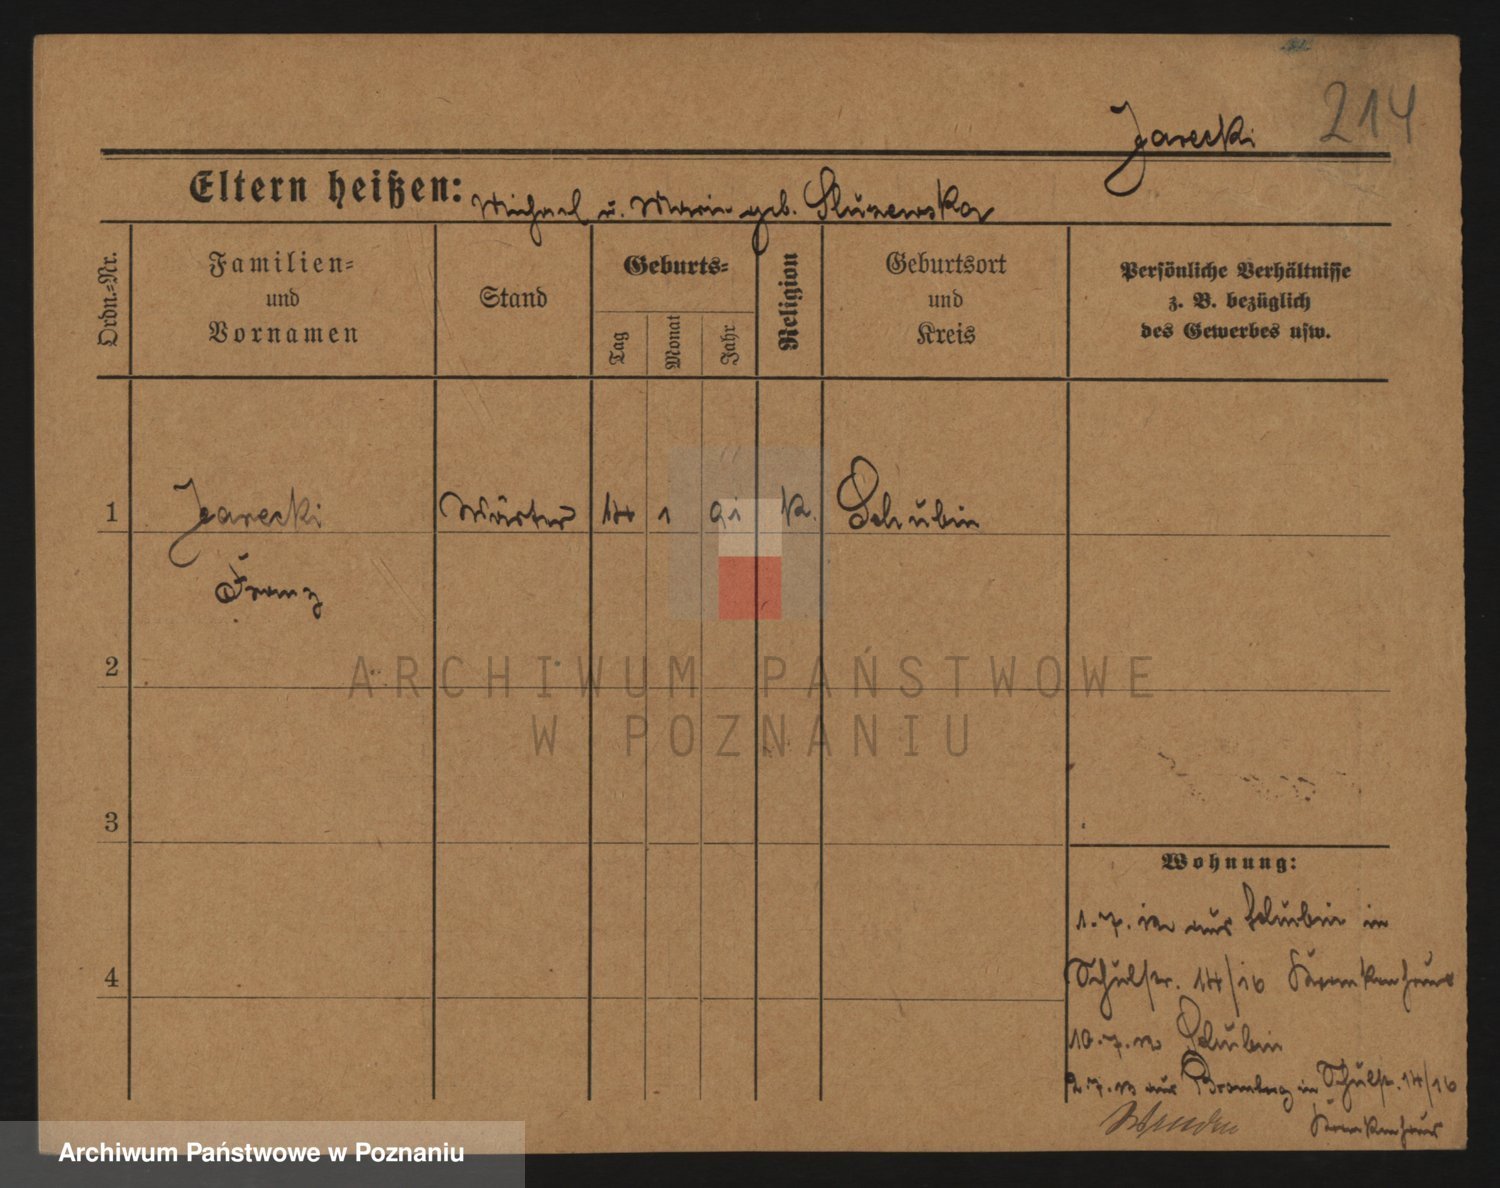 214
Jarecki
Eltern heißen: Michael u. Marie geb. Sluzewska
Ordn.-Nr.
Familien- und Vornamen
Stand
Geburts-
Tag
Monat
Jahr
Religion
Geburtsort und Kreis
Persönliche Verhältnisse
z. B. bezüglich
des Gewerbes usw.
1 Jarecki Wärter 14 1 91 K. Schubin
Franz
2
ARCHIWUM PAŃSTWOWE
W POZNANIU
3
4
Wohnung:
1.7. aus Schubin in
Schulstr. 14/16 Krankenhaus
10.7. Schubin
2.7.13 aus Bromberg in Schulstr. 14/16
Krankenhaus
Archiwum Państwowe w Poznaniu